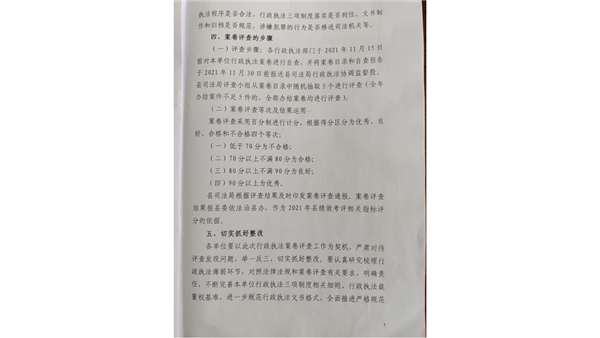 执法程序是否合法，行政执法三项制度落实是否到位，文书制
作和归档是否规范，涉嫌犯罪的行为是否移送司法机关等。
四、案卷评查的步骤
（一）评查步骤：各行政执法部门于 2021 年 11 月 15 日
前对本单位行政执法案卷进行自查，并将案卷目录和自查报告
于 2021 年 11 月 30 日前报送县司法局行政执法协调监督股。
县司法局评查小组从案卷目录中随机抽取 5 个进行评查（全年
办结案件不足 5 件的，全部办结案卷均进行评查）。
（二）案卷评查等次及结果运用
案卷评查采用百分制进行计分，根据得分区分为优秀、良
好、合格和不合格四个等次：
（一）低于 70 分为不合格；
（二）70 分以上不满 80 分为合格；
（三）80 分以上不满 90 分为良好；
（四）90 分以上为优秀。
县司法局根据评查结果及时印发案卷评查通报，案卷评查
结果报县委依法治县办，作为 2021 年县绩效考评相关指标评
分的依据。
五、切实抓好整改
各单位要以此次行政执法案卷评查工作为契机，严肃对待
评查发现问题，举一反三，切实抓好整改。要认真研究梳理行
政执法薄弱环节，对照法律法规和案卷评查有关要求，明确责
任，不断完善本单位行政执法三项制度相关细则、行政执法裁
量权基准，进一步规范行政执法文书格式，全面推进严格规范